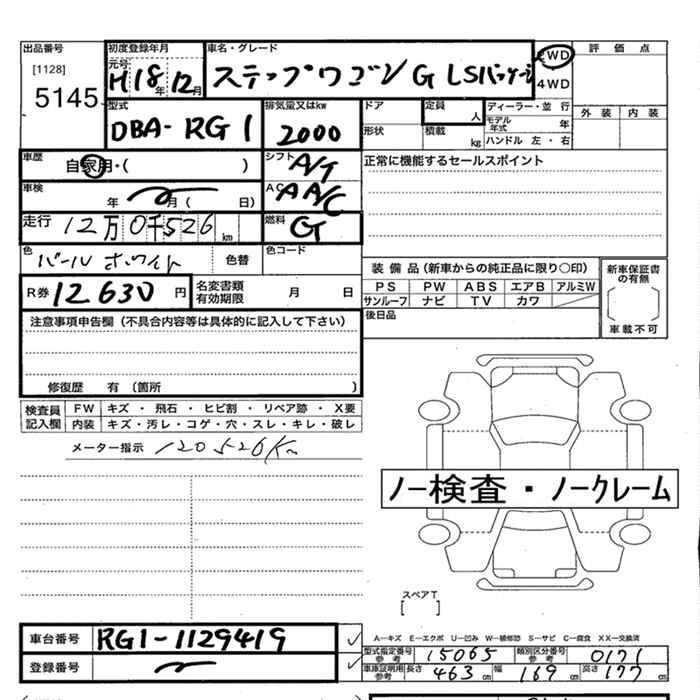 出品番号 初度登録年月 車名・グレード 2WD 評価点
[1128] 元号 H18年12月 ステップワゴン G LSパッケージ 4WD
5145 外装 内装
型式 排気量又はkw ドア 定員 人 ディーラー・並行
DBA-RG1 2000 形状 積載 kg モデル年式 年
ハンドル 左・右
車歴 自家用・( ) シフト A/T 正常に機能するセールスポイント
車検 年 月( 日) AC AA/C
走行 12万0千526km 燃料 G
色 パールホワイト 色替 色コード
装備品(新車からの純正品に限り○印) 新車保証書の有無
R券 12630円 名変書類有効期限 月 日 PS PW ABS エアB アルミW
サンルーフ ナビ TV カワ 車載不可
注意事項申告欄(不具合内容等は具体的に記入して下さい) 後日品
修復歴 有(箇所 )
検査員記入欄 FW キズ・飛石・ヒビ割・リペア跡・X要
内装 キズ・汚レ・コゲ・穴・スレ・キレ・破レ
メーター指示 120526Km
ノー検査・ノークレーム
スペアT
[ ]
車台番号 RG1-1129419 A-キズ E-エクボ U-凹み W-補修跡 S-サビ C-腐食 XX-交換済
登録番号 型式指定番号参考 15065 類別区分番号参考 0171
車庫証明用参考 長さ 463cm 幅 169cm 高さ 177cm